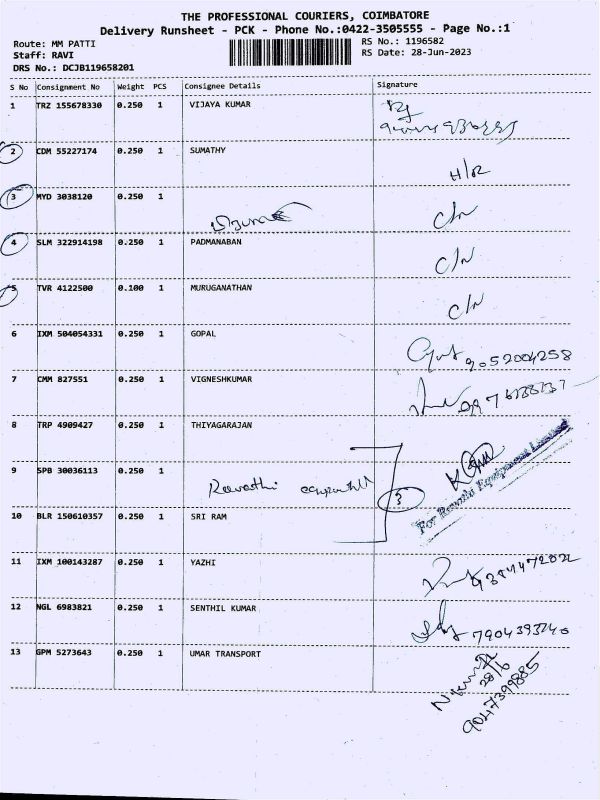 THE PROFESSIONAL COURIERS, COIMBATORE
Delivery Runsheet - PCK - Phone No.:0422-3505555 - Page No.:1
Route: MM PATTI
RS No.: 1196582
Staff: RAVI
RS Date: 28-Jun-2023
DRS No.: DCJB119658201
S No Consignment No Weight PCS Consignee Details Signature
1 TRZ 155678330 0.250 1 VIJAYA KUMAR
2 CDM 55227174 0.250 1 SUMATHY H/R
3 MYD 3038120 0.250 1 C/N
4 SLM 322914198 0.250 1 PADMANABAN C/N
5 TVR 4122500 0.100 1 MURUGANATHAN C/N
6 IXM 504054331 0.250 1 GOPAL 9052004258
7 CMM 827551 0.250 1 VIGNESHKUMAR
8 TRP 4909427 0.250 1 THIYAGARAJAN
9 SPB 30036113 0.250 1 Revathi 3
For Revathi Equipment Limited
10 BLR 150610357 0.250 1 SRI RAM
11 IXM 100143287 0.250 1 YAZHI
12 NGL 6983821 0.250 1 SENTHIL KUMAR 7904393240
13 GPM 5273643 0.250 1 UMAR TRANSPORT
28/6
9047399885